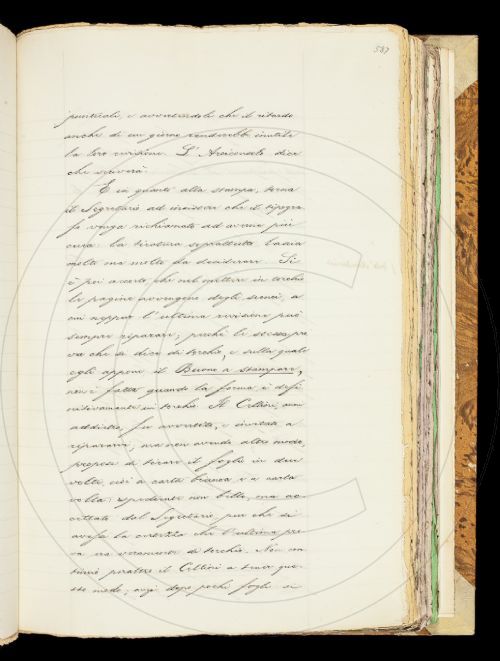 587
puntuali, e avvertendoli che il ritardo
anche di un giorno renderebbe inutile
la loro revisione. L'Arciconsolo dice
che scriverà.
E in quanto alla stampa, torna
il Segretario ad insistere che il tipogra
fo venga richiamato ad averne più
cura: la tiratura soprattutto lascia
molto ma molto da desiderare. Si
è poi accorto che nel mettere in torchio
le pagine avvengono degli sconci, a
cui neppur l'ultima revisione può
sempre riparare; perchè la stessa pro
va che si dice di torchio, e sulla quale
egli appone il Buono a stampare,
non è fatta quando la forma è defi
nitivamente in torchio. Il Cellini, anni
addietro, fu avvertito, e invitato a
ripararvi; ma non avendo altro modo,
propose di tirare il foglio in due
volte, cioè a carta bianca e a carta
volta: espediente non bello, ma ac
cettato dal Segretario, pur che si
avesse la certezza che l'ultima pro
va era veramente di torchio. Non con
tinuò peraltro il Cellini a tener que
sto modo; anzi dopo pochi fogli si